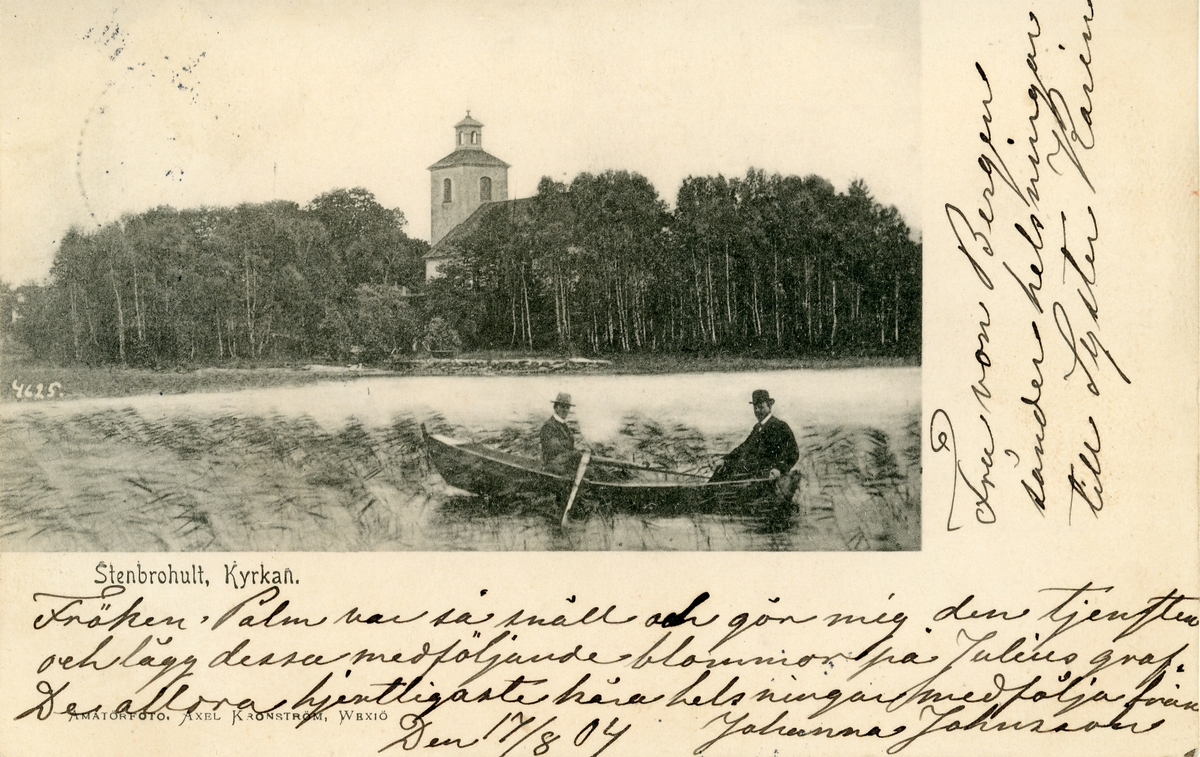 4625.
Stenbrohult, Kyrkan.
Fröken. Palm var så snäll och gör mig den tjensten
och lägg dessa medföljande blommor på Julius graf.
De allora hjertligaste kära helsningar medfölja från
AMATÖRFOTO. AXEL KRONSTRÖM, WEXIÖ
Den 17/8 04 Johanna Johnsson
Fru von Bergen
sänder helsningar
till Syster Karin